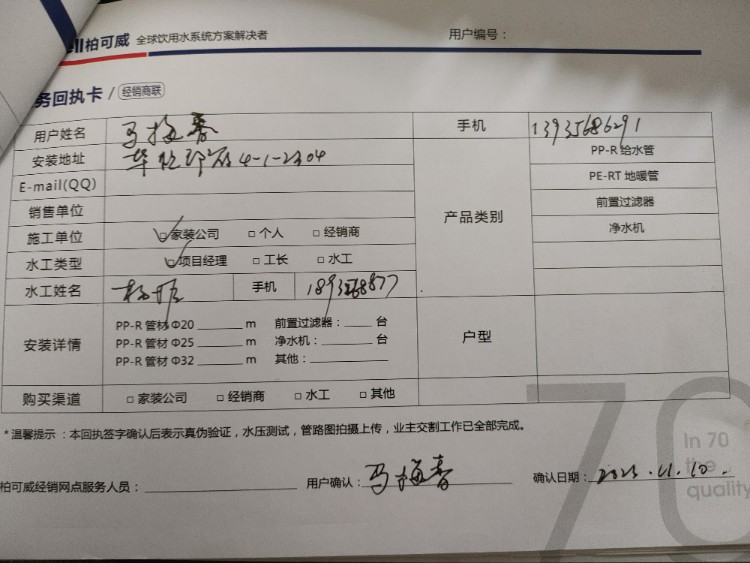 柏可威 全球饮用水系统方案解决者 用户编号：
务回执卡 / 经销商联
用户姓名 马梅春 手机 13935686291
安装地址 4-1-2304
E-mail(QQ)
销售单位
施工单位 □家装公司 □个人 □经销商
水工类型 □项目经理 □工长 □水工
水工姓名 手机
产品类别
PP-R 给水管
PE-RT 地暖管
前置过滤器
净水机
安装详情
PP-R 管材 Φ20 ______ m 前置过滤器：____ 台
PP-R 管材 Φ25 ______ m 净水机：____ 台
PP-R 管材 Φ32 ______ m 其他：______
户型
购买渠道 □家装公司 □经销商 □水工 □其他
*温馨提示：本回执签字确认后表示真伪验证，水压测试，管路图拍摄上传，业主交割工作已全部完成。
柏可威经销网点服务人员：______ 用户确认：马梅春 确认日期：
70
In 70
the
quality